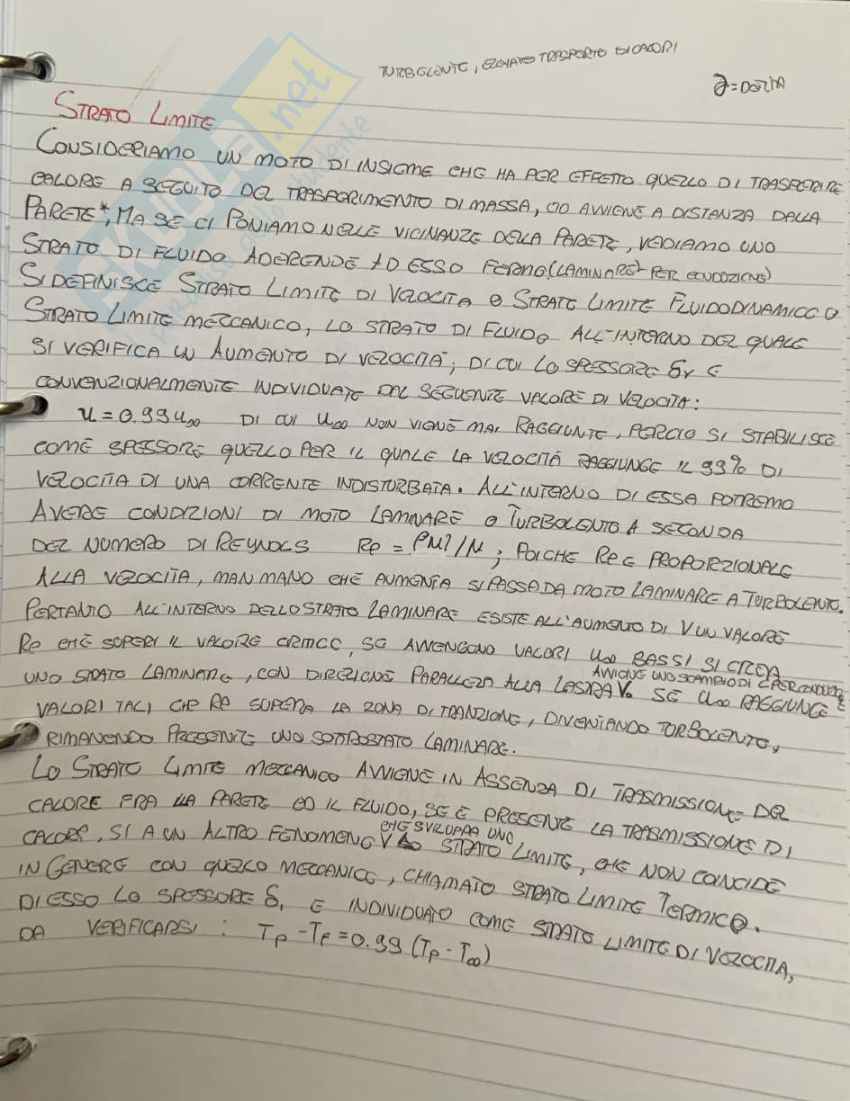 TURBOLENTE, ELEVATO TRASPORTO DI CALORI
∂ = DELTA
STRATO LIMITE
CONSIDERIAMO UN MOTO DI INSIEME CHE HA PER EFFETTO QUELLO DI TRASFERIRE
CALORE A SEGUITO DEL TRASFERIMENTO DI MASSA, CIO AVVIENE A DISTANZA DALLA
PARETE*, MA SE CI PONIAMO NELLE VICINANZE DELLA PARETE, VEDIAMO UNO
STRATO DI FLUIDO ADERENDE AD ESSO FERMO (LAMINARE PER CONDUZIONE)
SI DEFINISCE STRATO LIMITE DI VELOCITA O STRATO LIMITE FLUIDODINAMICO O
STRATO LIMITE MECCANICO, LO STRATO DI FLUIDO ALL'INTERNO DEL QUALE
SI VERIFICA UN AUMENTO DI VELOCITÀ, DI CUI LO SPESSORE δv E
CONVENZIONALMENTE INDIVIDUATE DAL SEGUENTE VALORE DI VELOCITA:
u = 0.99 u∞ DI CUI u∞ NON VIENE MAI RAGGIUNTE, PERCIO SI STABILISCE
COME SPESSORE QUELLO PER IL QUALE LA VELOCITÀ RAGGIUNGE IL 99% DI
VELOCITA DI UNA CORRENTE INDISTURBATA. ALL'INTERNO DI ESSA POTREMO
AVERE CONDIZIONI DI MOTO LAMINARE O TURBOLENTO A SECONDA
DEL NUMERO DI REYNOLS Re = ρul/μ ; POICHE Re E PROPORZIONALE
ALLA VELOCITA, MAN MANO CHE AUMENTA SI PASSA DA MOTO LAMINARE A TURBOLENTO.
PERTANTO ALL'INTERNO DELLO STRATO LAMINARE ESISTE ALL'AUMENTO DI V UN VALORE
Re CHE SUPERI IL VALORE, SE AVVENGONO VALORI u∞ BASSI SI CREA
UNO STRATO LAMINARE, CON DIREZIONE PARALLELA ALLA LASTRA V. SE u∞ RAGGIUNGE
AVVIENE UNO SCAMBIO DI PER CONDUZIONE
VALORI TALI CHE Re SUPERA LA ZONA DI TRANZIONE, DIVENTANDO TORBOLENTO,
RIMANENDO PRESENTE UNO SOTTOSTATO LAMINARE.
LO STRATO LIMITE MECCANICO AVVIENE IN ASSENZA DI TRASMISSIONE DEL
CALORE FRA LA PARETE ED IL FLUIDO, SE E PRESENTE LA TRASMISSIONE DI
CALORE, SI A UN ALTRO FENOMENO V STRATO LIMITE, CHE NON COINCIDE
CHE SVILUPPA UNO
IN GENERE CON QUELLO MECCANICO, CHIAMATO STRATO LIMITE TERMICO.
DI ESSO LO SPESSORE δ, E INDIVIDUATO COME STRATO LIMITE DI VELOCITA,
DA VERIFICARSI : Tp - Tf = 0.99 (Tp - T∞)